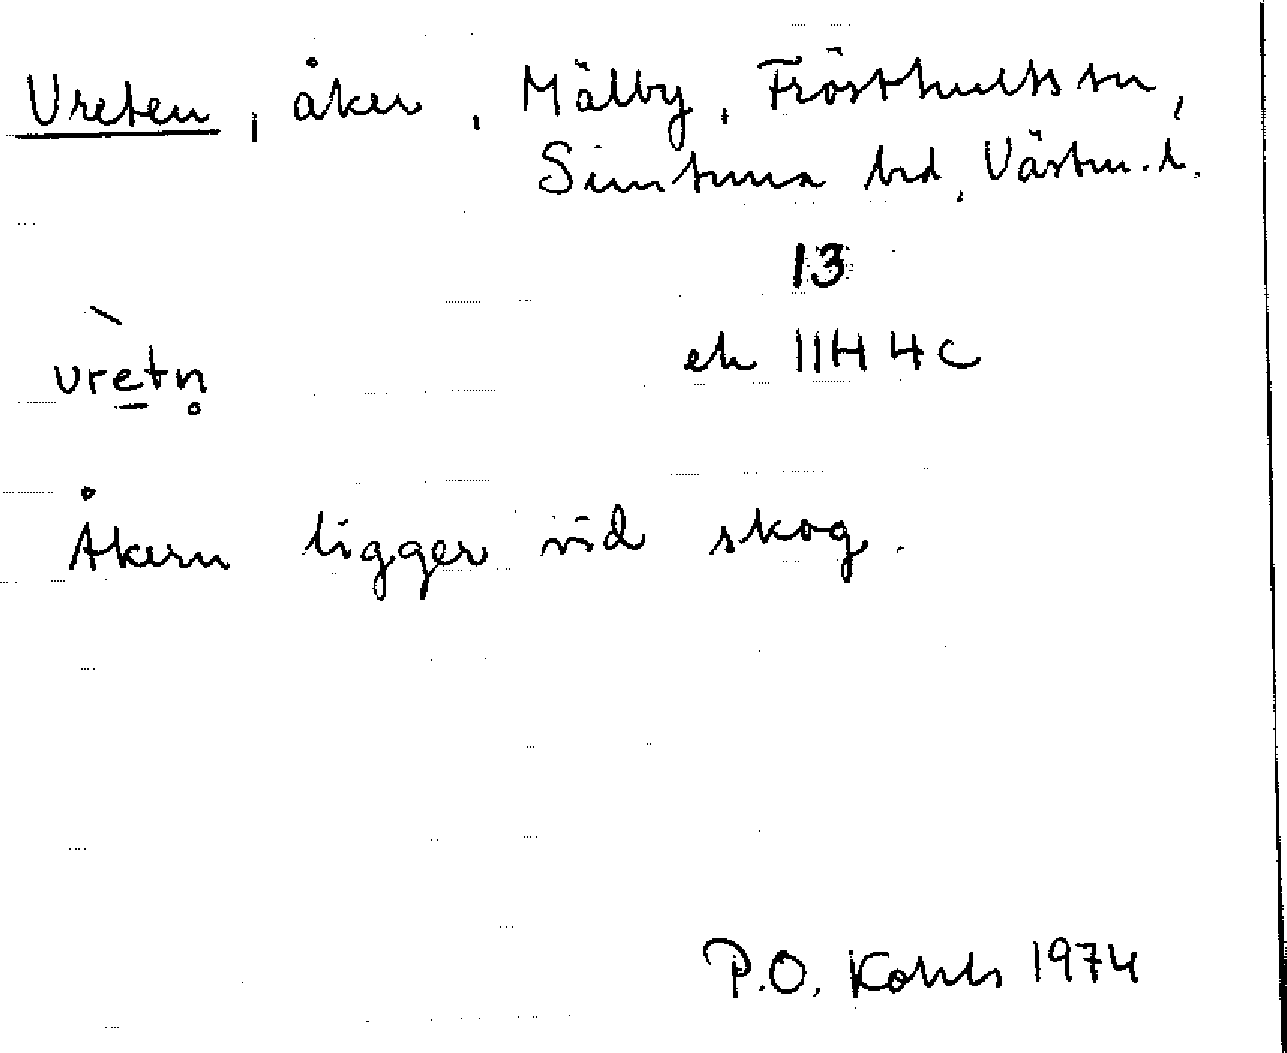 Vreten, åker, Mälby, Frösthults sn,
Simtuna hd, Västm. l.
13
ek 11H 4c
vrètn̥
Åkern ligger vid skog.
P.O. 1974